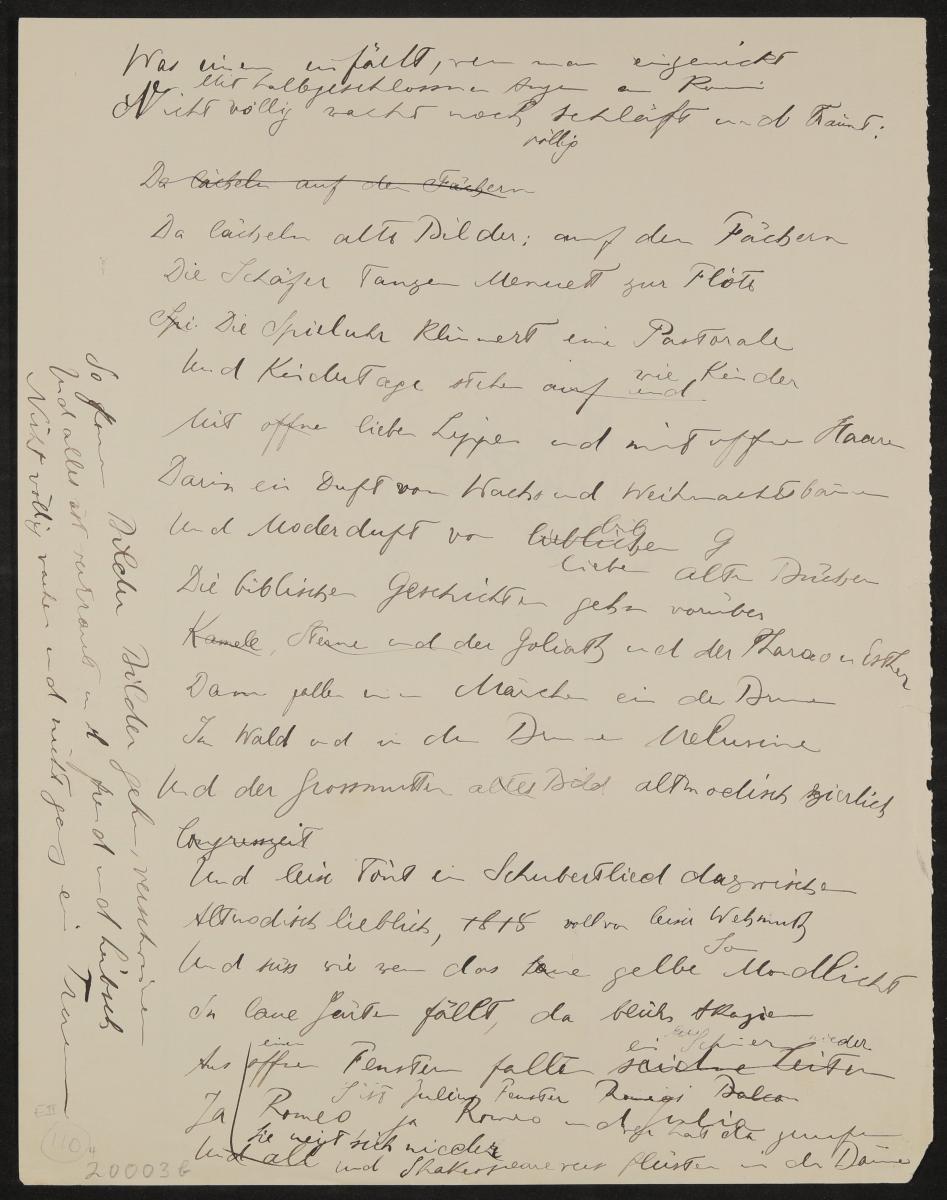 Was einem einfällt, wenn man eingenickt
Mit halbgeschlossnen Augen am Kamin
Nicht völlig wacht noch schläft und träumt:
völlig
Da lächeln auf den Fächern
Da lächeln alte Bilder; auf den Fächern
Die Schäfer tanzen Menuett zur Flöte
Spi. Die Spieluhr klimpert eine Pastorale
Und Kindertage stehen auf wie Kinder
und
Mit offnen lieben Lippen und mit offnen Haaren
Darin ein Duft von Wachs und Weihnachtsbäumen
Und Moderduft von lieblichen G
lieben alten Büchern
Die biblischen Geschichten gehn vorüber
Kamele, Sterne und der Goliath und der Pharao u Esther
Dann fallen einem Märchen ein der Brunnen
Im Wald und in dem Brunnen Melusine
Und der Grossmutter altes Bild altmodisch zierlich
Congresszeit
Und leise tönt ein Schubertlied dazwischen
Altmodisch lieblich, 1818 voll von leiser Wehmuth
Und süss wie wenn das gelbe Mondlicht
In laue Gärten fällt, da blühn Akazien
einen ein nieder
Aus offnen Fenstern fallen seidne Leitern
Ist Julias Fenster Romeos Balcon
Ja Romeo ja Romeo und Julia
wer hat da gerufen
Sie neigt sich nieder
Und all und Shakespeareverse flüstern in der Dämm
So kommen Bilder Bilder gehen, verschwimmen
Und alles ist vertraut und fremd und hübsch
Nicht völlig wachen und nicht ganz ein Träumen
E III
110
20003 b